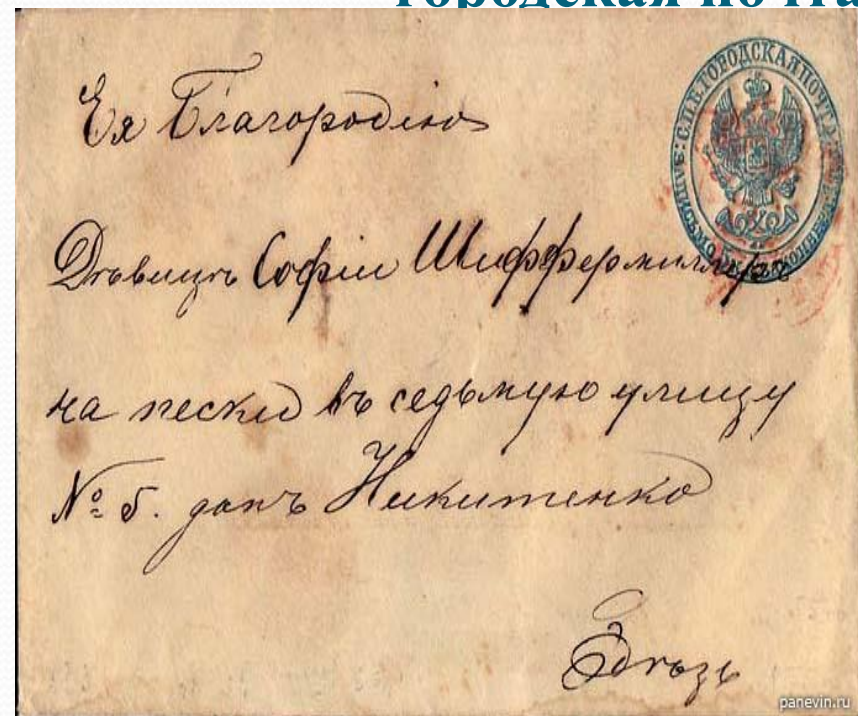 городская почта
С.П.Б. ГОРОДСКАЯ ПОЧТА
Ея Благородію
Дѣвицѣ Софіи Шиффермиллеръ
на пески въ седьмую улицу
№ 5. домъ Никитенко
Здѣзь
panevin.ru